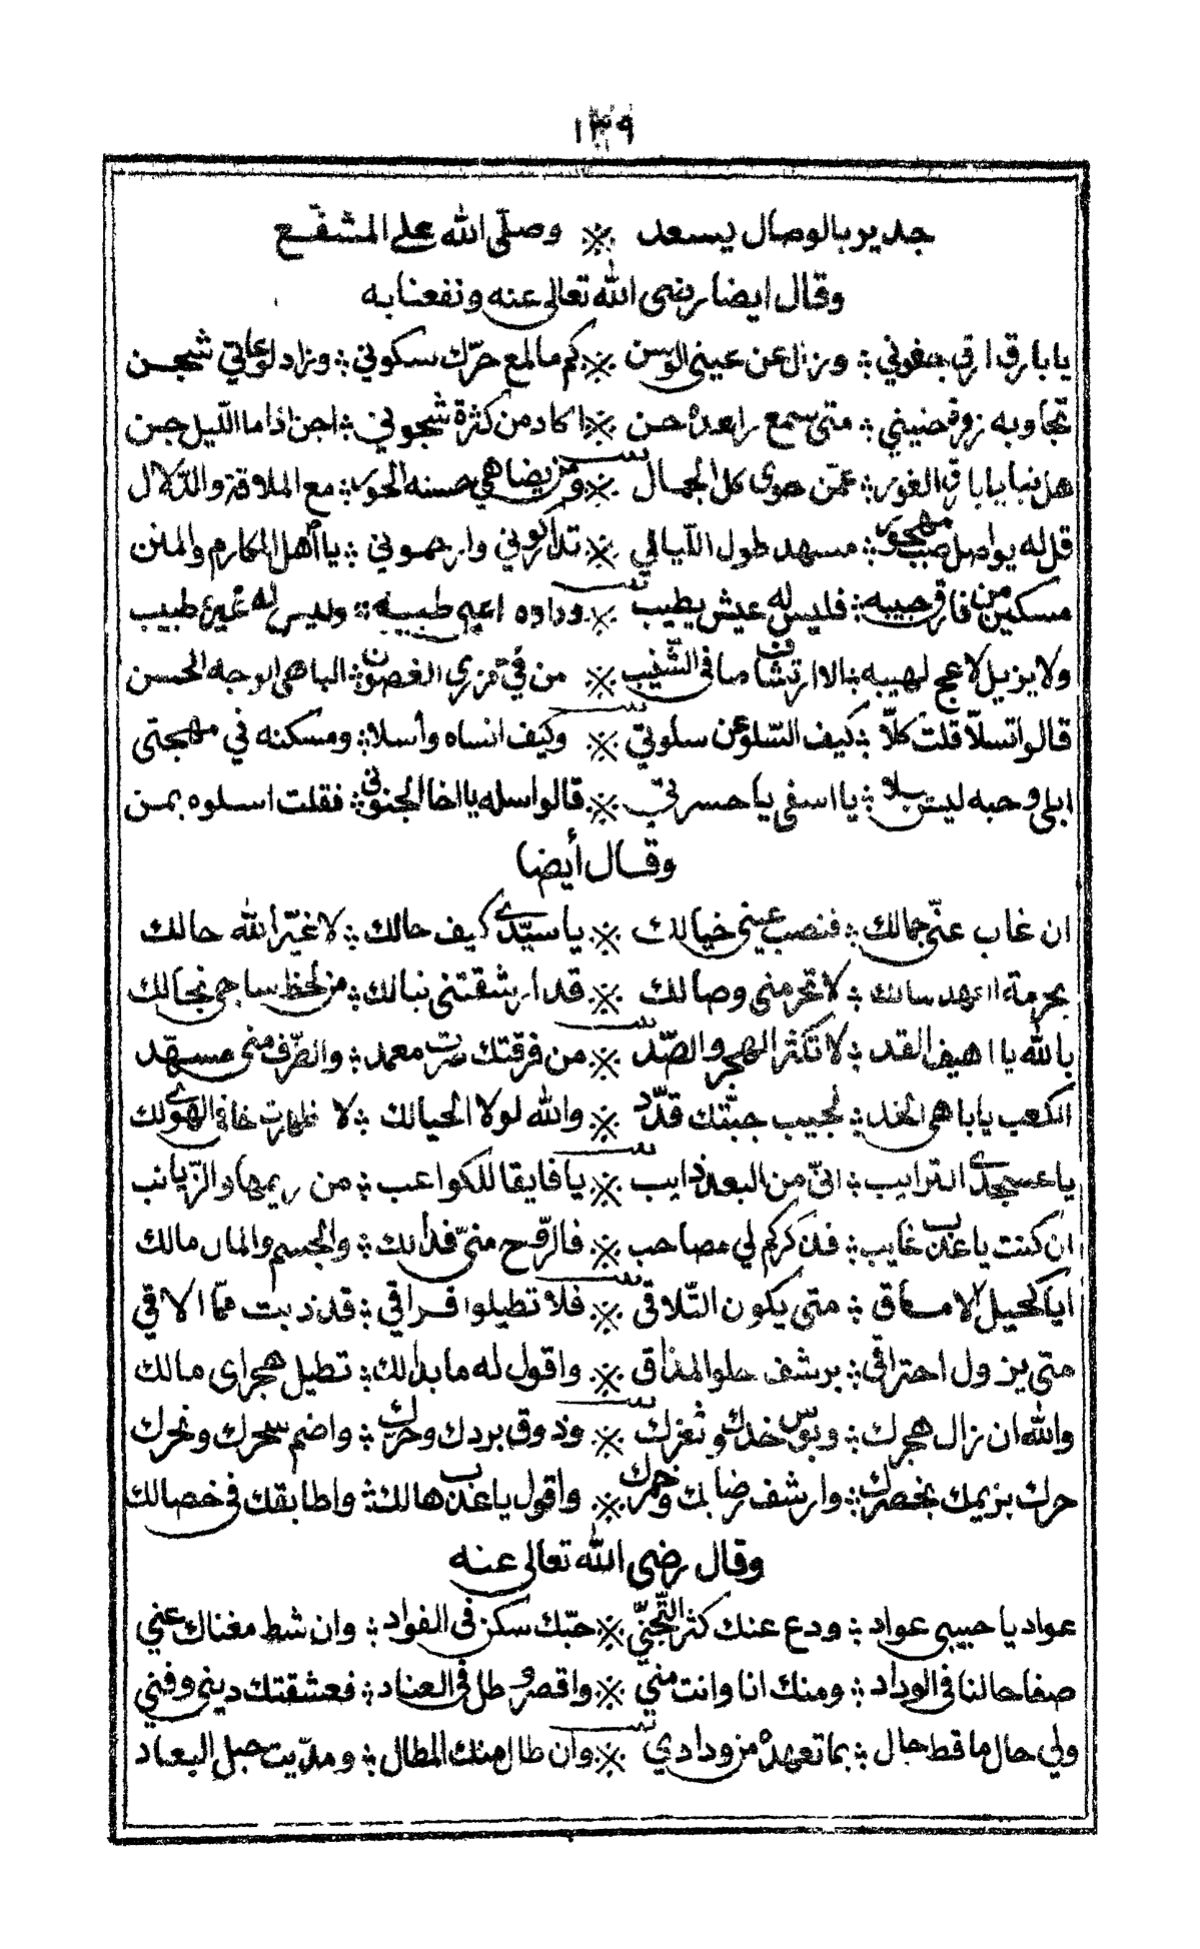 ١٣٩
جدير بالوصال يسعد ※ وصلّى الله على المشفّع
وقال ايضا رضى الله تعالى عنه ونفعنا به
يا بارق ارق جفوني ؞ وزال عن عيني الوسن ※ كم مالمع حرّك سكوني ؞ وزاد لوعاتي شجن
تجاوبه زوقه حنيني ؞ متى سمع راعده حن ※ اكاد من كثرة شجوني ؞ اجن اذا ما اللّيل جن
هل نبا يا بارق الغوير ؞ عمّن حوى كل الجمال ※ ومن يضاهي حسنه الحور ؞ مع الملاقة والدّلال
قل له يواصل صب مهجور ؞ مسهد طول اللّيالي ※ تذاكروني وارحموني ؞ يا اهل المكارم والمنن
مسكين من فارق حبيبه ؞ فليس له عيش يطيب ※ وداده اعيى طبيبه ؞ وليس له غيره طبيب
ولا يزيل لاعج لهيبه ؞ الا ارتشاف ما في الشّنيب ※ من في تزري الغصون ؞ الباهى الوجه الحسن
قالوا تسلّا قلت كلّا ؞ كيف السّلو عن سلوتي ※ وكيف انساه وأسلا ؞ ومسكنه في مهجتى
ابلى وحبه ليس يبلا ؞ يا اسفى يا حسرتي ※ قالوا اسله يا اخا الجنون ؞ فقلت اسلوه بمن
وقال أيضا
ان غاب عنّى جمالك ؞ فنصب عيني خيالك ※ يا سيّدى كيف حالك ؞ لا غيّر الله حالك
بحرمة العهد سالك ؞ لا تحرمنى وصالك ※ قد ارشقتنى نبالك ؞ من لحظ ساجى نجالك
بالله يا اهيف القد ؞ لا تكثر الهجر والصّد ※ من فرقتك صرت معمد ؞ والطّرف منى مسهّد
الكعب يا باهى الخد ؞ لجيب جبتك قدّد ※ والله لولا الحيا لك ؞ لا ظهارت خافى الهوى لك
يا عسجدى الترايب ؞ انىّ من البعد ذايب ※ يا فايقا للكواعب ؞ من ريمها والزيانب
ان كنت يا عذب غايب ؞ فذكركم لي مصاحب ※ فالرّوح منىّ فدا لك ؞ والجسم والمال مالك
ايا كحيل لاماق ؞ متى يكون التّلاقى ※ فلا تطيلوا فراقي ؞ قد ذبت ممّا الاقي
متى يزول احتراقى ؞ برشف حلو المذاق ※ واقول له ما بدا لك ؞ تطيل هجراى مالك
والله ان زال هجرك ؞ وبوس خدك وثغرك ※ وذوق بردك وحرك ؞ واضم سحرك ونحرك
حرك بزيمك بخصرك ؞ وارشف رضابك وخمرك ※ واقول يا عذب هالك ؞ واطابقك في خصالك
وقال رضى الله تعالى عنه
عواد يا حبيبى عواد ؞ ودع عنك كثر التّجنّي ※ حبّك سكن فى الفواد ؞ وان شط مغناك عني
صفا حالنا فى الوداد ؞ ومنك انا وانت مني ※ واقصر وطل فى العناد ؞ فعشقتك دينى وفني
ولي حال ما قط حال ؞ بما تعهده من ودادي ※ وان طال منك المطال ؞ ومدّيت حبل البعاد